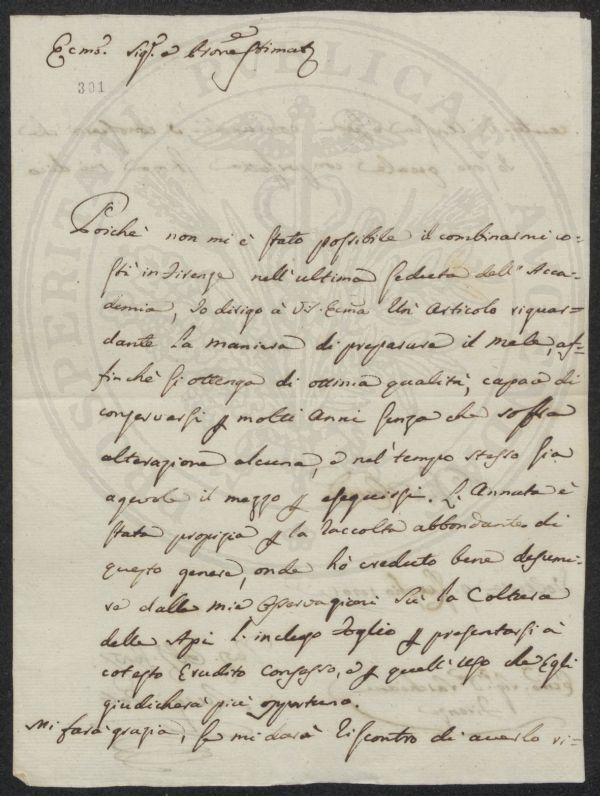 Ecmo. Sigr. e Prone Stimatᵒ
301
Poichè non mi è stato possibile il combinarmi co-
stì in Firenze nell'ultima seduta dell'Acca-
demia, Io dirigo à VS. Ecma Un' Articolo riguar=
dante la maniera di preparare il mele, af=
finchè si ottenga di ottima qualità, capace di
conservarsi p molti Anni senza che soffra
alterazione alcuna, e nel tempo stesso sia
agevole il mezzo p eseguirsi. L'Annata è
stata propizia p la raccolta abbondante di
questo genere, onde hò creduto bene desumi=
re dalle mie Osservazioni sù la Coltura
delle Api l'incluso Foglio p presentarsi à
cotesto Erudito Consesso, e p quell'uso che Egli
giudicherà più opportuno.
Mi farà grazia, se mi darà riscontro di averlo ri=
PROSPERITATI PUBLICAE AUGENDAE